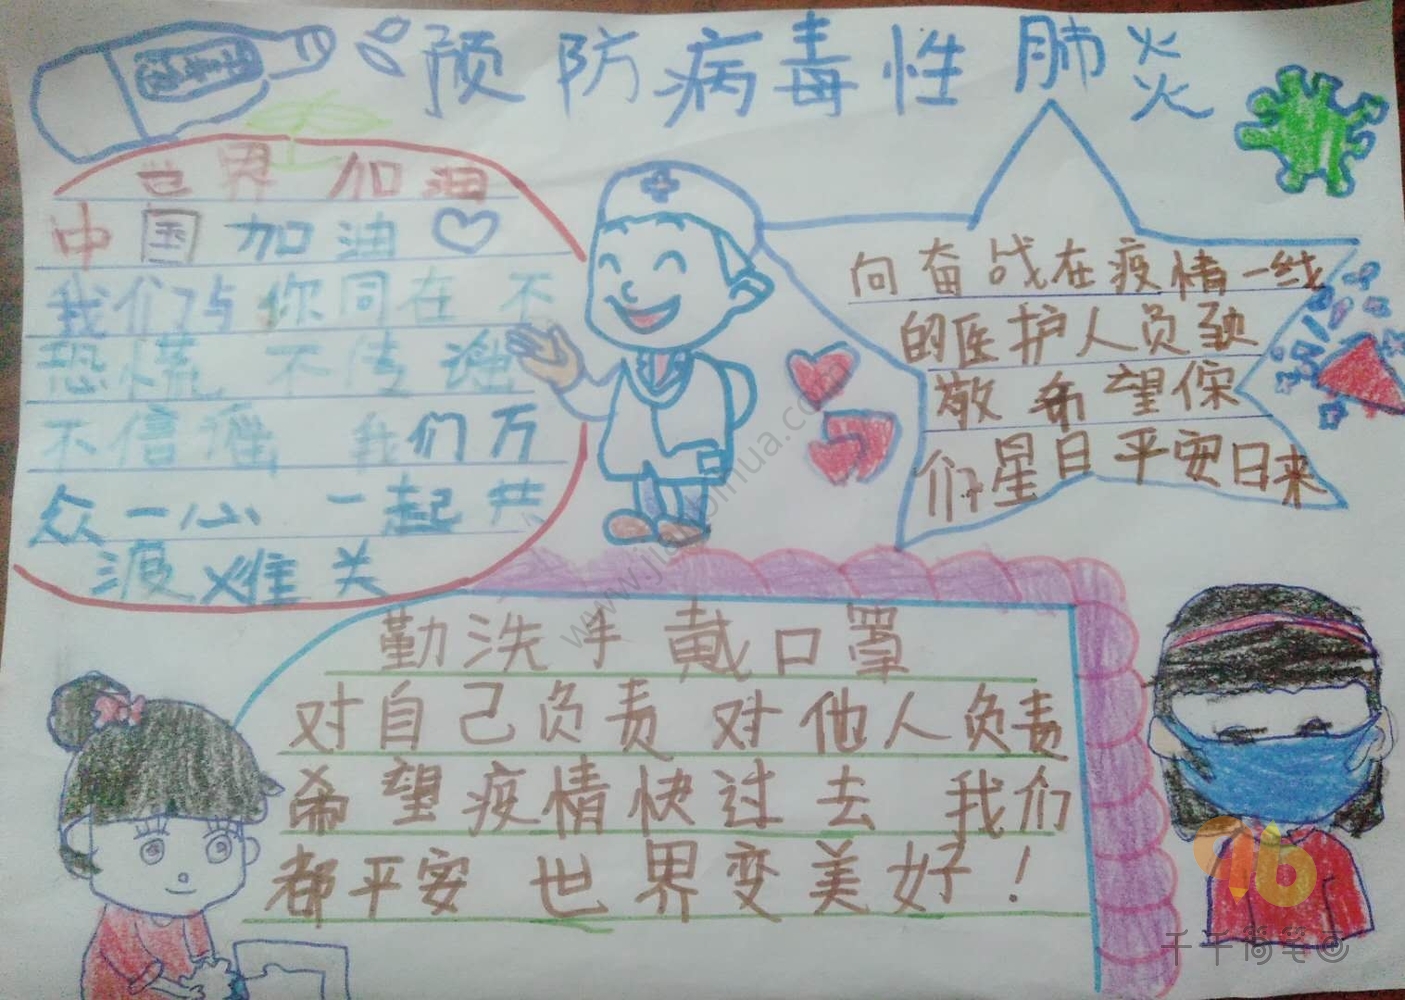 预防病毒性肺炎
世界 加油
中国加油
我们与你同在 不
恐慌 不传谣
不信谣 我们万
众一心 一起共
渡难关
向奋战在疫情一线
的医护人员致
敬 希望你
们早日平安归来
勤洗手 戴口罩
对自己负责 对他人负责
希望疫情快过去 我们
都平安 世界变美好！
www.jianbihua.com
千千简笔画